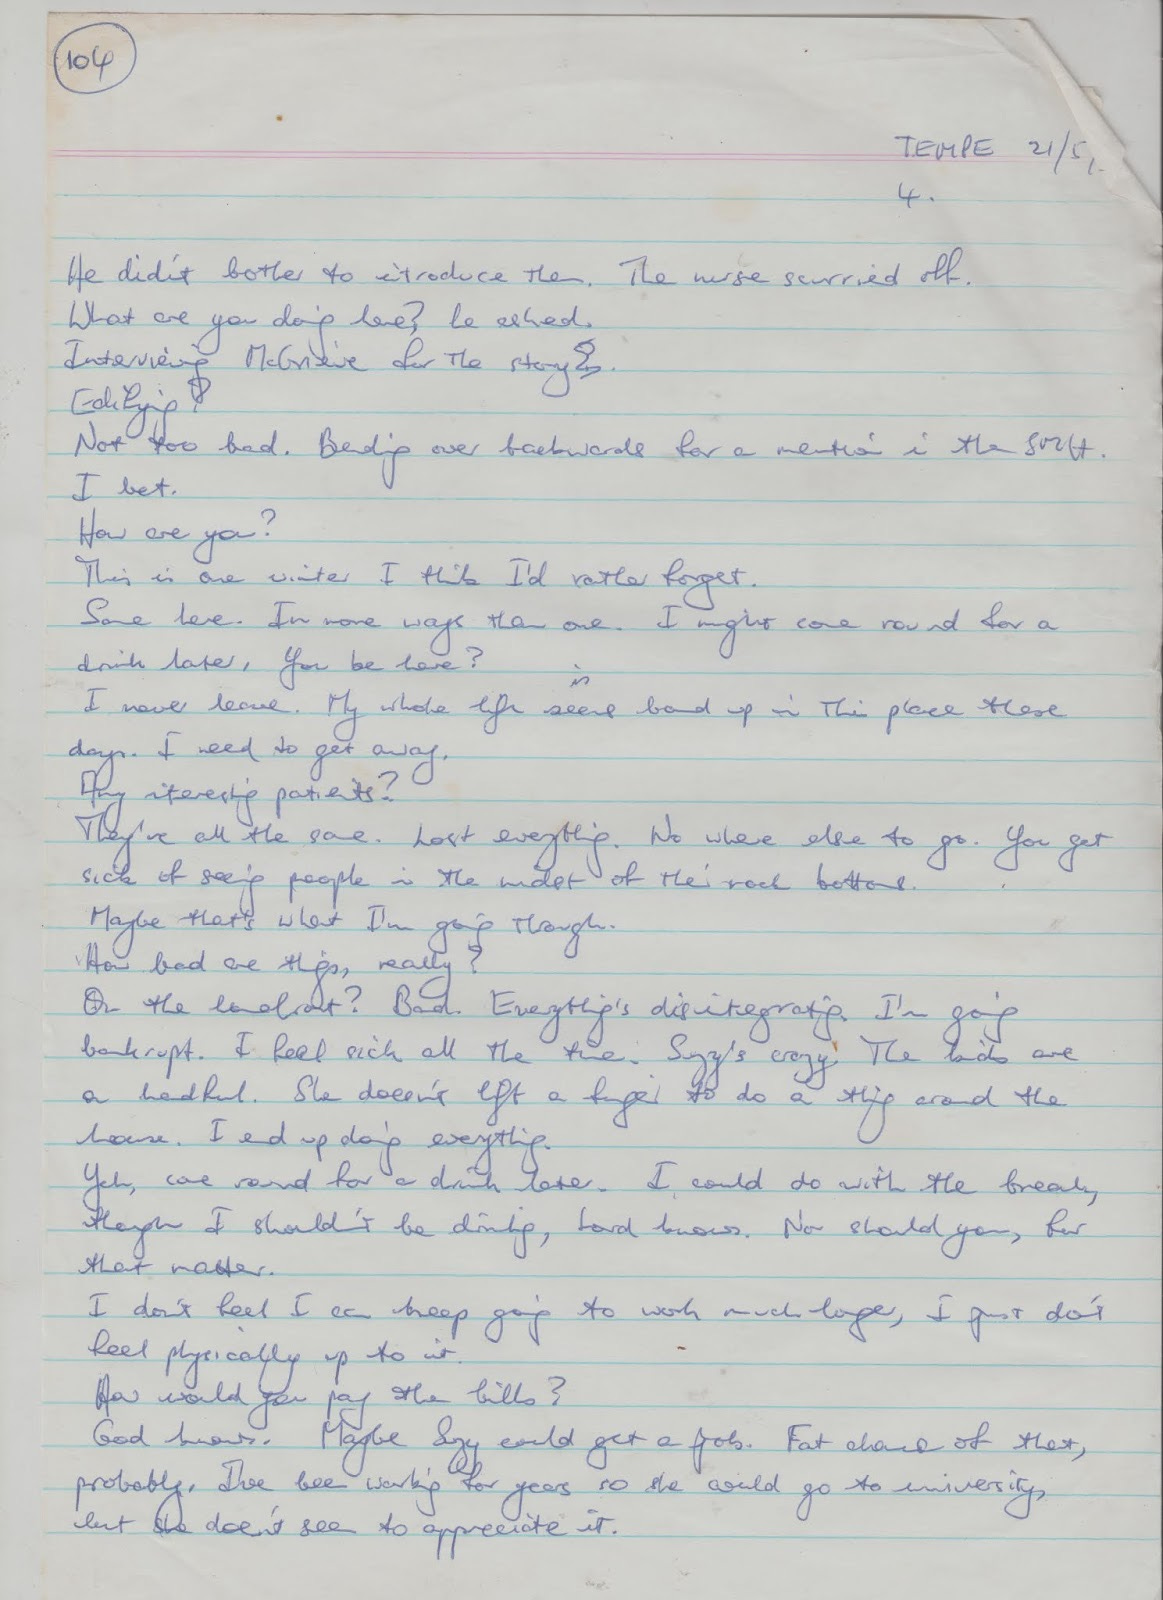 104
TEMPE 21/5/
4.
He didn't bother to introduce them. The nurse scurried off.
What are you doing here? he asked.
Interviewing McGrieve for the story.
Edifying?
Not too bad. Bending over backwards for a mention in the SMH.
I bet.
How are you?
This is one winter I think I'd rather forget.
Same here. In more ways than one. I might come round for a
drink later, You be here?
I never leave. My whole life seems bound up in this place these
days. I need to get away.
Any interesting patients?
They're all the same. Lost everything. No where else to go. You get
sick of seeing people in the midst of their rock bottoms.
Maybe that's what I'm going through.
How bad are things, really?
On the homefront? Bad. Everything's disintegrating. I'm going
bankrupt. I feel sick all the time. Suzy's crazy. The kids are
a handful. She doesn't lift a finger to do a thing around the
house. I end up doing everything.
Yeh, come round for a drink later. I could do with the break,
though I shouldn't be drinking, Lord knows. Nor should you, for
that matter.
I don't feel I can keep going to work much longer, I just don't
feel physically up to it.
How would you pay the bills?
God knows. Maybe Suzy could get a job. Fat chance of that,
probably. I've been working for years so she could go to university,
but she doesn't seem to appreciate it.